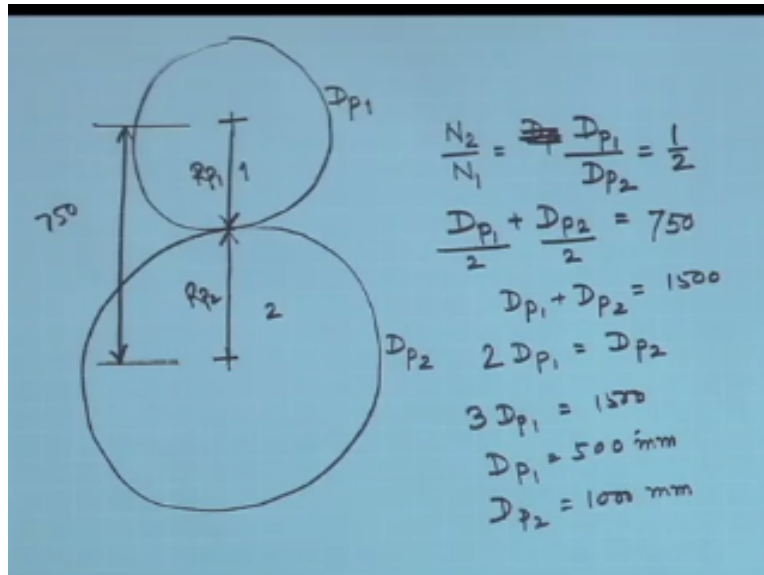 D_P1
R_P1 1
750
R_P2
2
D_P2
N_2/N_1 = D_P1/D_P2 = 1/2
D_P1/2 + D_P2/2 = 750
D_P1 + D_P2 = 1500
2 D_P1 = D_P2
3 D_P1 = 1500
D_P1 = 500 mm
D_P2 = 1000 mm